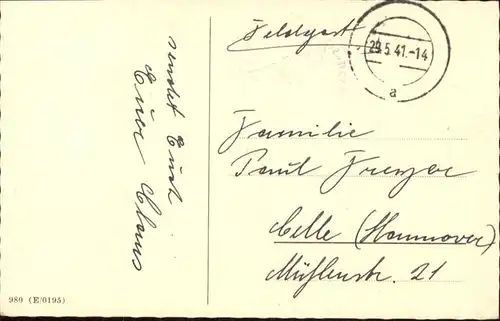 sendet Euch
Euer Claus
980 (E/0195)
Feldpost
29.5.41.-14
a
Familie
Paul
Celle (Hannover)
Mühlenstr. 21